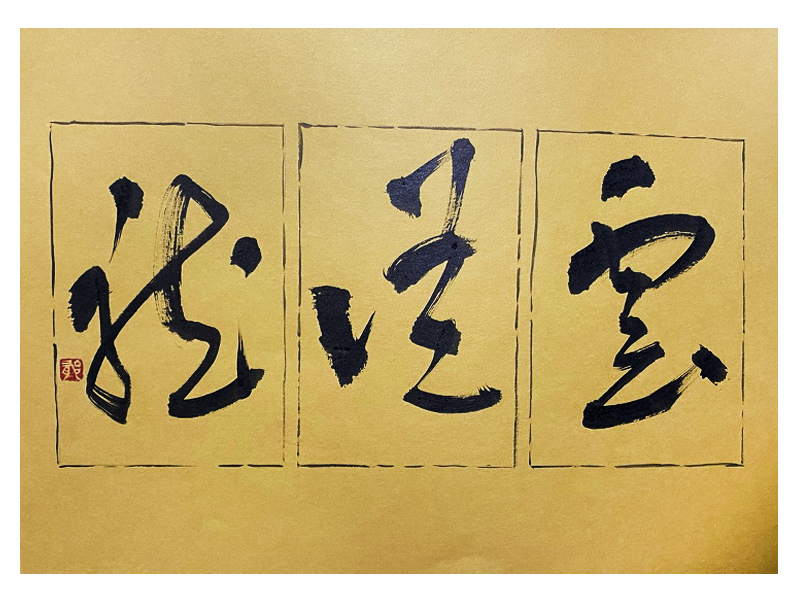 雲從龍